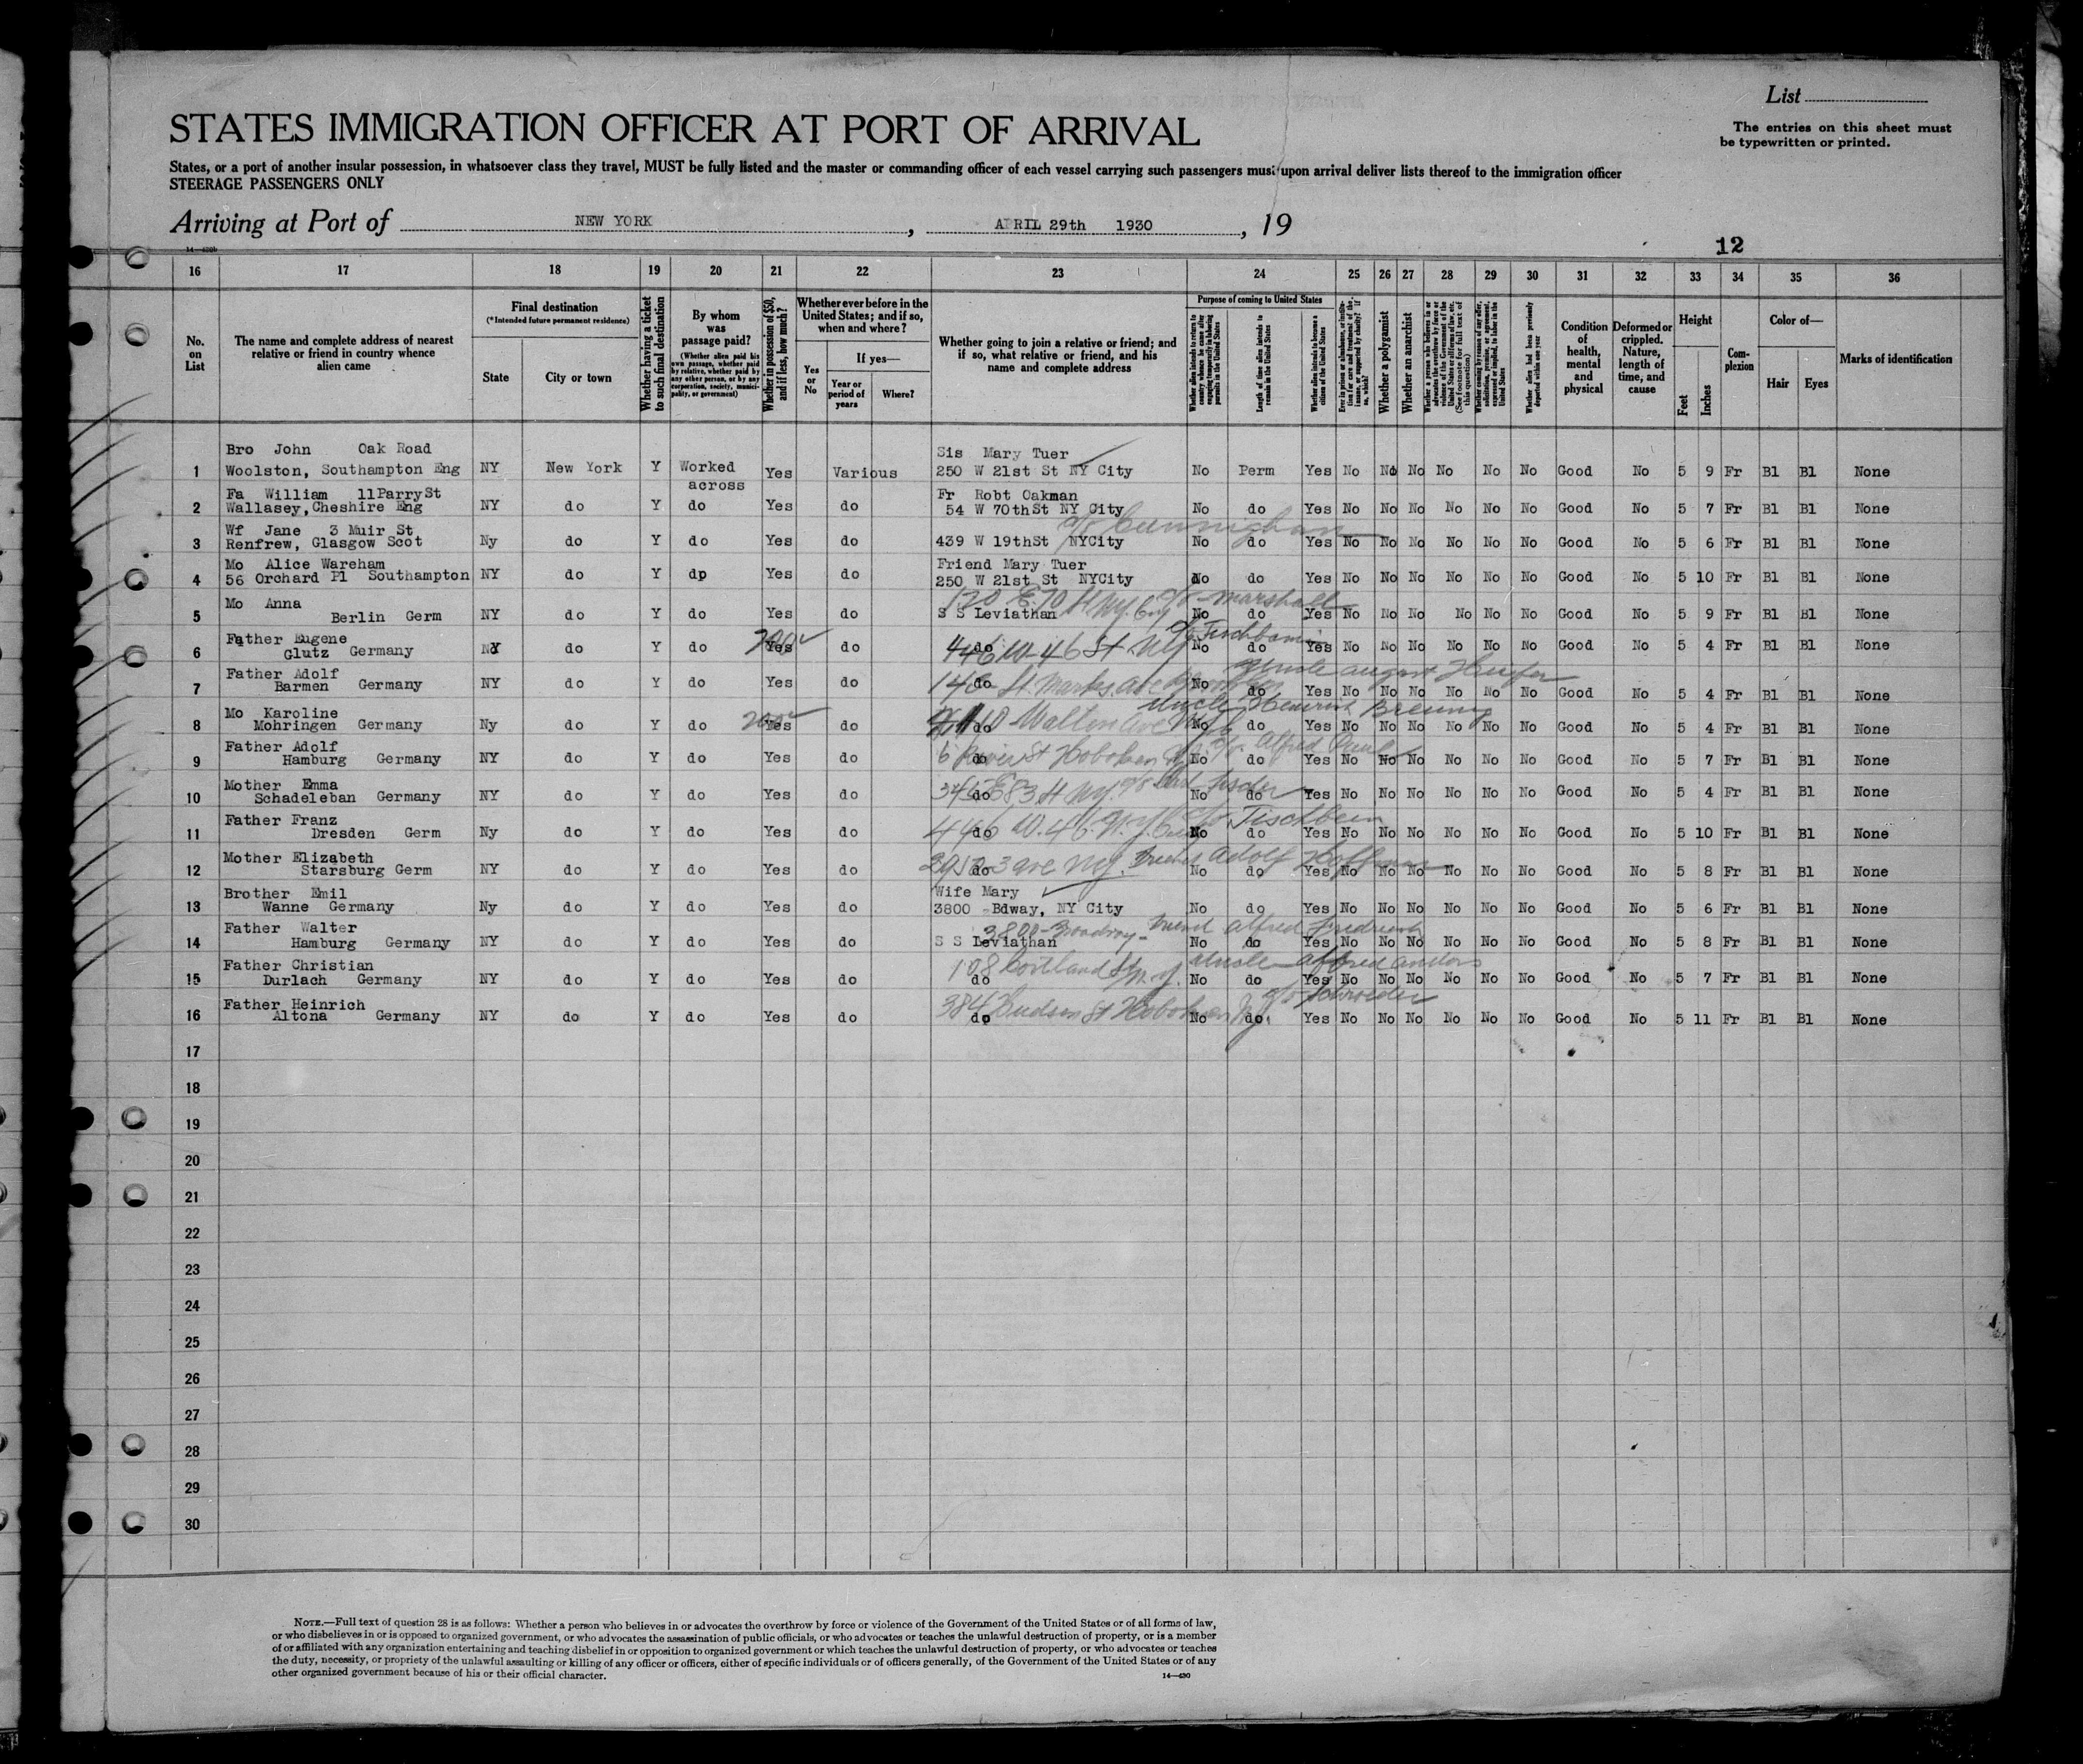 List
The entries on this sheet must
be typewritten or printed.
STATES IMMIGRATION OFFICER AT PORT OF ARRIVAL
States, or a port of another insular possession, in whatsoever class they travel, MUST be fully listed and the master or commanding officer of each vessel carrying such passengers must upon arrival deliver lists thereof to the immigration officer
STEERAGE PASSENGERS ONLY
Arriving at Port of NEW YORK, APRIL 29th 1930, 19
12
16 17 18 19 20 21 22 23 24 25 26 27 28 29 30 31 32 33 34 35 36
No. on List
The name and complete address of nearest relative or friend in country whence alien came
Final destination
(*Intended future permanent residence)
State
City or town
Whether having a ticket to such final destination
By whom was passage paid?
(Whether alien paid his own passage, whether paid by relative, whether paid by any other person, or by any corporation, society, municipality, or government)
Whether in possession of $50, and if less, how much?
Whether ever before in the United States; and if so, when and where?
Yes or No
If yes—
Year or period of years
Where?
Whether going to join a relative or friend; and if so, what relative or friend, and his name and complete address
Purpose of coming to United States
Length of time alien intends to remain in the United States
Whether alien intends to become a citizen of the United States
Whether a polygamist
Whether an anarchist
(See footnote for full text of this question)
Condition of health, mental and physical
Deformed or crippled. Nature, length of time, and cause
Height
Feet
Inches
Complexion
Color of—
Hair
Eyes
Marks of identification
Bro John Oak Road Sis Mary Tuer
1 Woolston, Southampton Eng NY New York Y Worked across Yes Various 250 W 21st St NY City No Perm Yes No No No No No No Good No 5 9 Fr Bl Bl None
Fa William 11ParrySt Fr Robt Oakman
2 Wallasey, Cheshire Eng NY do Y do Yes do 54 W 70thSt NY City No do Yes No No No No No No Good No 5 7 Fr Bl Bl None
Wf Jane 3 Muir St c/o Cunningham
3 Renfrew, Glasgow Scot Ny do Y do Yes do 439 W 19thSt NYCity No do Yes No No No No No No Good No 5 6 Fr Bl Bl None
Mo Alice Wareham Friend Mary Tuer
4 56 Orchard Pl Southampton NY do Y dp Yes do 250 W 21st St NYCity No do Yes No No No No No No Good No 5 10 Fr Bl Bl None
Mo Anna 130 E. 70 St NY City c/o Marshall
5 Berlin Germ NY do Y do Yes do S S Leviathan No do Yes No No No No No No Good No 5 9 Fr Bl Bl None
Father Eugene
6 Glutz Germany NY do Y do Yes do do 446 W-46 St NY No do Yes No No No No No No Good No 5 4 Fr Bl Bl None
Father Adolf Uncle August
7 Barmen Germany NY do Y do Yes do do St. Marks Ave No do Yes No No No No No No Good No 5 4 Fr Bl Bl None
Mo Karoline Uncle Heinrich
8 Mohringen Germany Ny do Y do Yes do do Walton Ave No do Yes No No No No No No Good No 5 4 Fr Bl Bl None
Father Adolf c/o Alfred
9 Hamburg Germany NY do Y do Yes do do River St Hoboken No do Yes No No No No No No Good No 5 7 Fr Bl Bl None
Mother Emma
10 Schadeleban Germany NY do Y do Yes do do E 83 St NY. c/o Fischer No do Yes No No No No No No Good No 5 4 Fr Bl Bl None
Father Franz c/o Tischbein
11 Dresden Germ Ny do Y do Yes do do 446 W. 46 No do Yes No No No No No No Good No 5 10 Fr Bl Bl None
Mother Elizabeth Adolf Hoffman
12 Starsburg Germ NY do Y do Yes do do 3 Ave NY. No do Yes No No No No No No Good No 5 8 Fr Bl Bl None
Brother Emil Wife Mary
13 Wanne Germany Ny do Y do Yes do 3800 -Bdway, NY City No do Yes No No No No No No Good No 5 6 Fr Bl Bl None
Father Walter 3800-Broadway- friend Alfred
14 Hamburg Germany NY do Y do Yes do S S Leviathan No do Yes No No No No No No Good No 5 8 Fr Bl Bl None
Father Christian 108 Cortland St Uncle Alfred Anders
15 Durlach Germany NY do Y do Yes do do No do Yes No No No No No No Good No 5 7 Fr Bl Bl None
Father Heinrich 384 Hudson St Hoboken c/o Schroeder
16 Altona Germany NY do Y do Yes do do No do Yes No No No No No No Good No 5 11 Fr Bl Bl None
17
18
19
20
21
22
23
24
25
26
27
28
29
30
NOTE.—Full text of question 28 is as follows: Whether a person who believes in or advocates the overthrow by force or violence of the Government of the United States or of all forms of law,
or who disbelieves in or is opposed to organized government, or who advocates the assassination of public officials, or who advocates or teaches the unlawful destruction of property, or is a member
of or affiliated with any organization entertaining and teaching disbelief in or opposition to organized government or which teaches the unlawful destruction of property, or who advocates or teaches
the duty, necessity, or propriety of the unlawful assaulting or killing of any officer or officers, either of specific individuals or of officers generally, of the Government of the United States or of any
other organized government because of his or their official character.
14—430